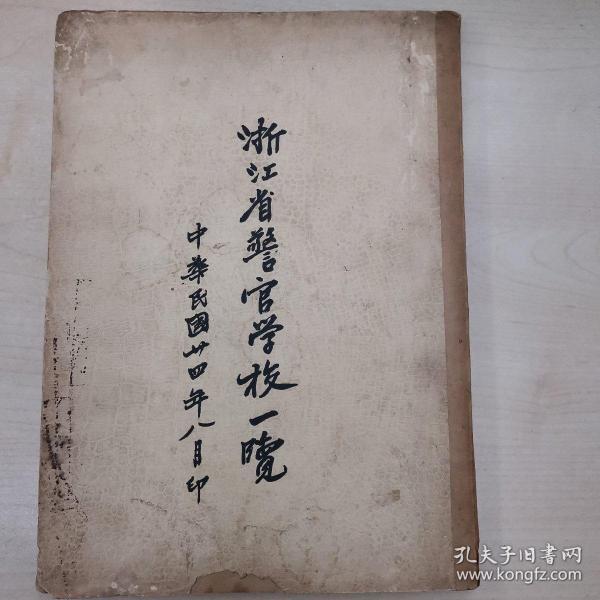 浙江省警官学校一覽
中華民國廿四年八月印
孔夫子旧書网
www.kongfz.com